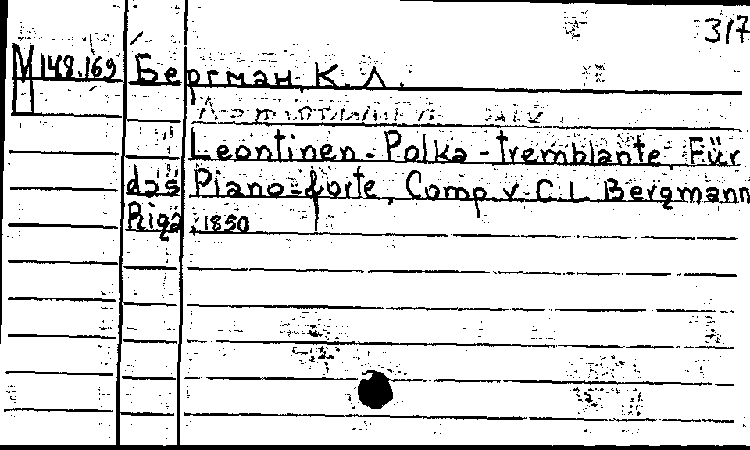 317
М 148.169 Бергман, К. Л.
Leontinen-Polka-tremblante. Für
das Piano-forte, Comp. v. C. L. Bergmann
Riga, 1850